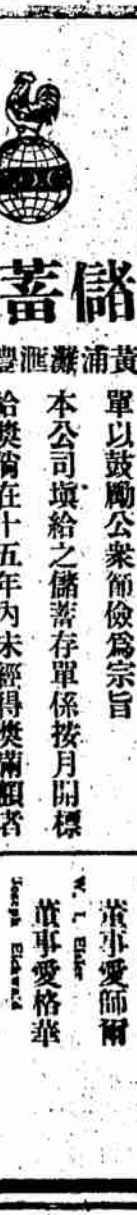 儲蓄
黃浦灘滙豐
單以鼓勵公衆節儉爲宗旨
本公司塡給之儲蓄存單係按月開標
給獎倘在十五年內未經得獎滿額者
董事愛師爾
W. L. Eisler
董事愛格華
Joseph